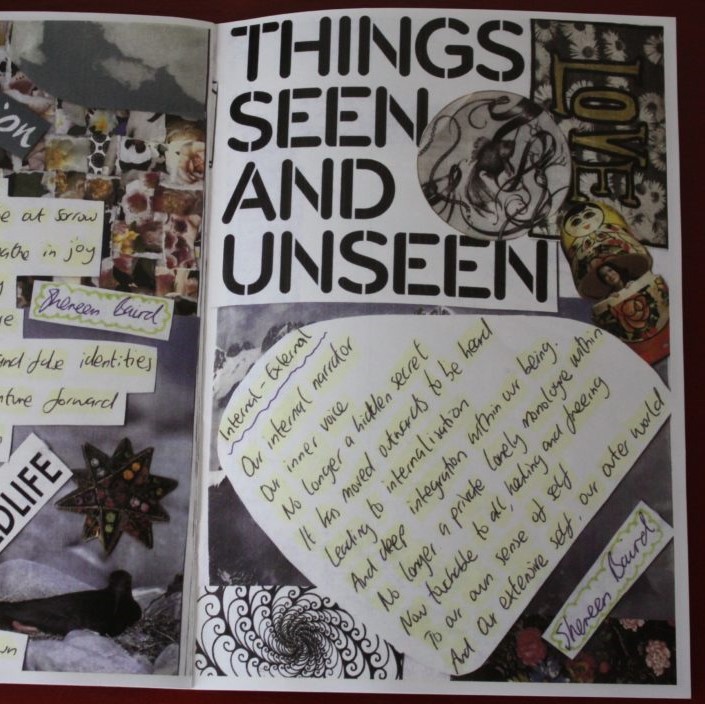 on
at sorrow
in joy
Shereen Baird
and fake identities
forward
DLIFE
THINGS
SEEN
AND
UNSEEN
LOVE
Internal - External
Our internal narrator
Our inner voice
No longer a hidden secret
It has moved outwards to be heard
Leading to internalisation
And deep integration within our being.
No longer a private lonely monologue within
Now touchable to all, healing and freeing
To our own sense of self
And our extensive self, our outer world
Shereen Baird